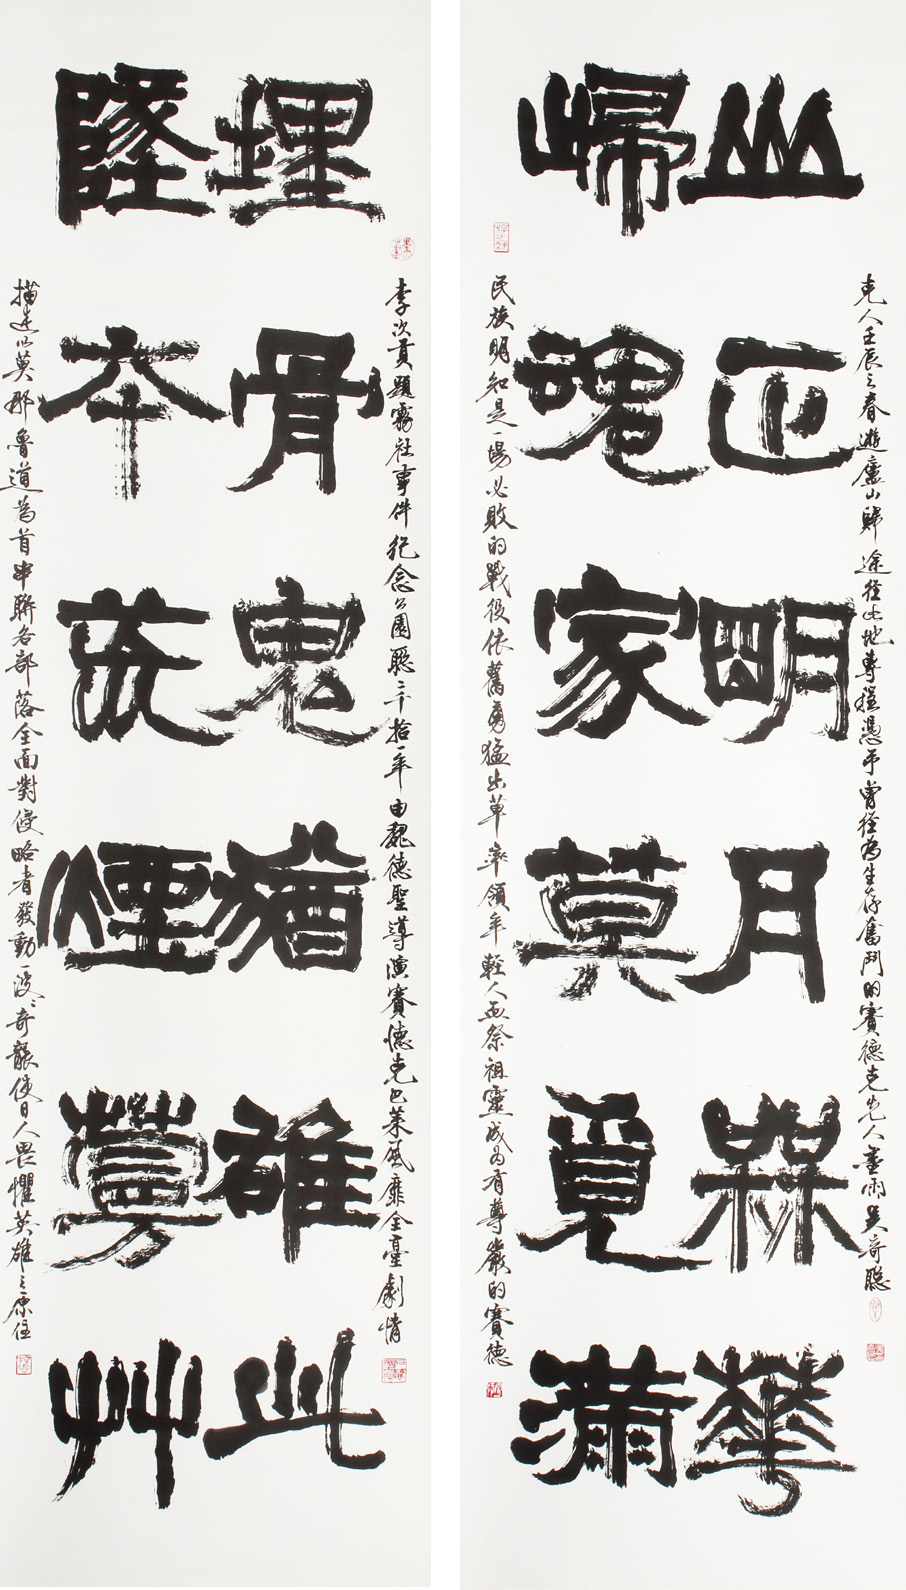 埋骨鬼猶雄此
隧本荒煙蔓艸
李次貢題霧社事件紀念公園聯二千拾一年由魏德聖導演賽德克巴萊風靡全臺劇情
描述以莫那魯道為首串聯各部落全面對侵略者發動一波〻奇襲使日人畏懼英雄之原住
歸魂家莫覓滿
山正明月槑華
民族明知是一場必敗的戰役依舊勇猛出草率領年輕人血祭祖靈成為有尊嚴的賽德
克人壬辰之春遊廬山歸途徑此地專程憑弔曾徑為生存奮鬥的賽德克先人墨雨吳奇聰